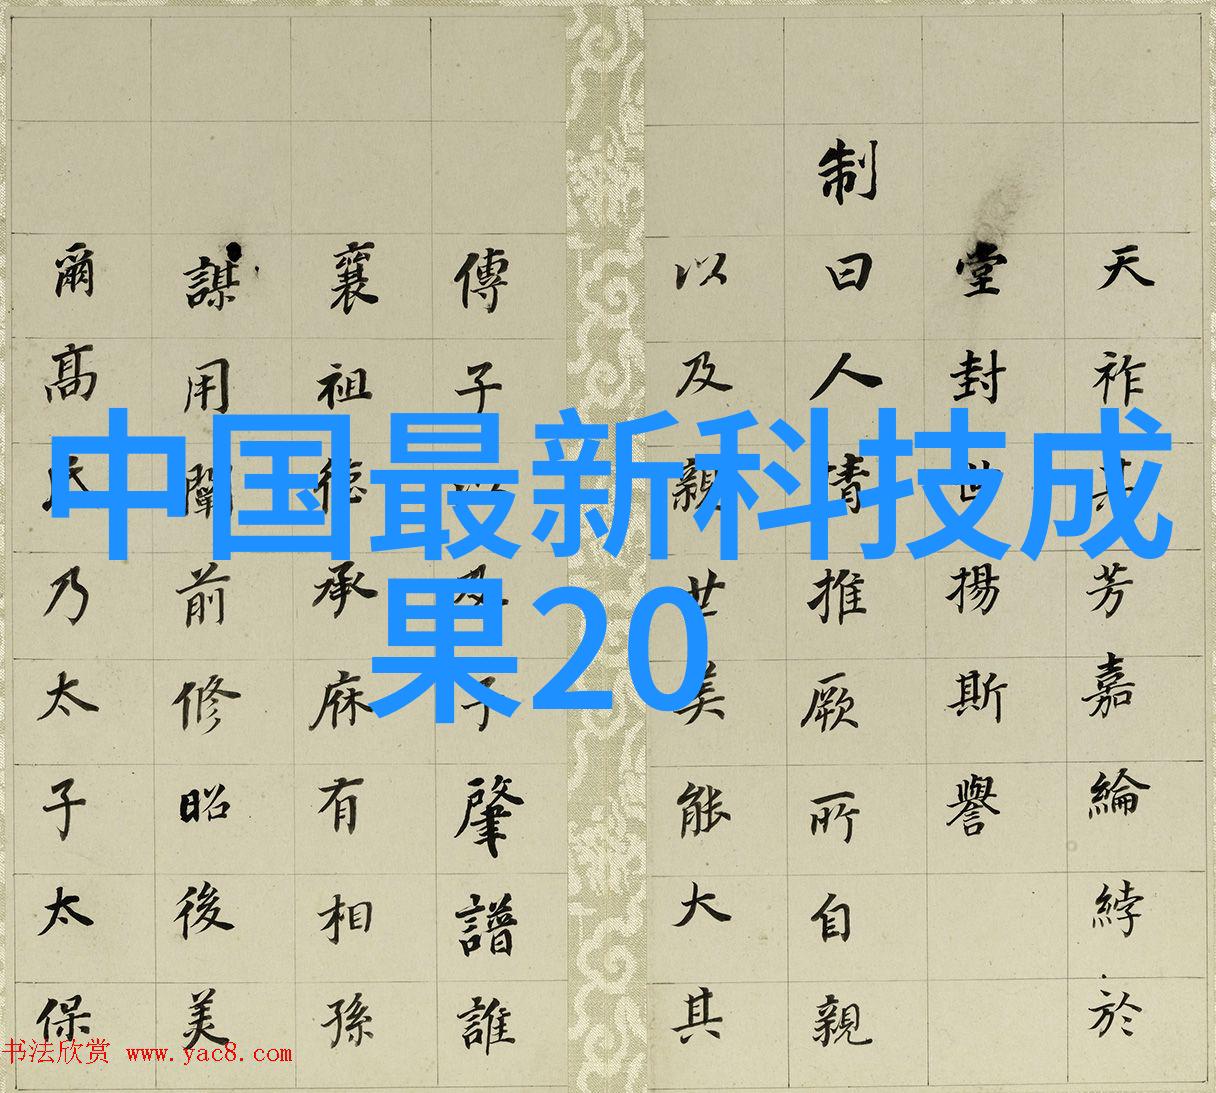 天祚芳嘉綸綍於
堂封世揚斯譽
制曰人情推厥所自親
以及親世美能大其
傳子以及子肇譜誰
襄祖德承庥有相孫
謀用闡前修昭後美
爾高氏乃太子太保
中国最新科技成
果20
书法欣赏 www.yac8.com